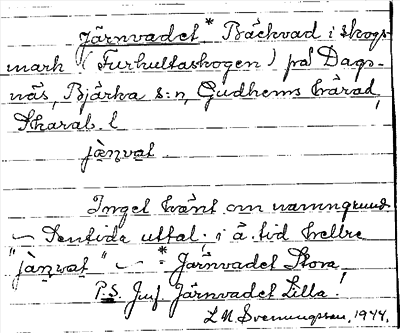 Järnvadet* Bäckvad i skogs-
mark (Furhultaskogen) på Dags-
näs, Bjärka s:n, Gudhems härad,
Skarab. l
jàṇvat
Inget känt om namngrund.
— Sentida uttal; i ä. tid hellre
"jàṇvat" — * Järnvadet Stora,
P.S. Jmf. Järnvadet Lilla!
L.M. Svenungsson, 1944.